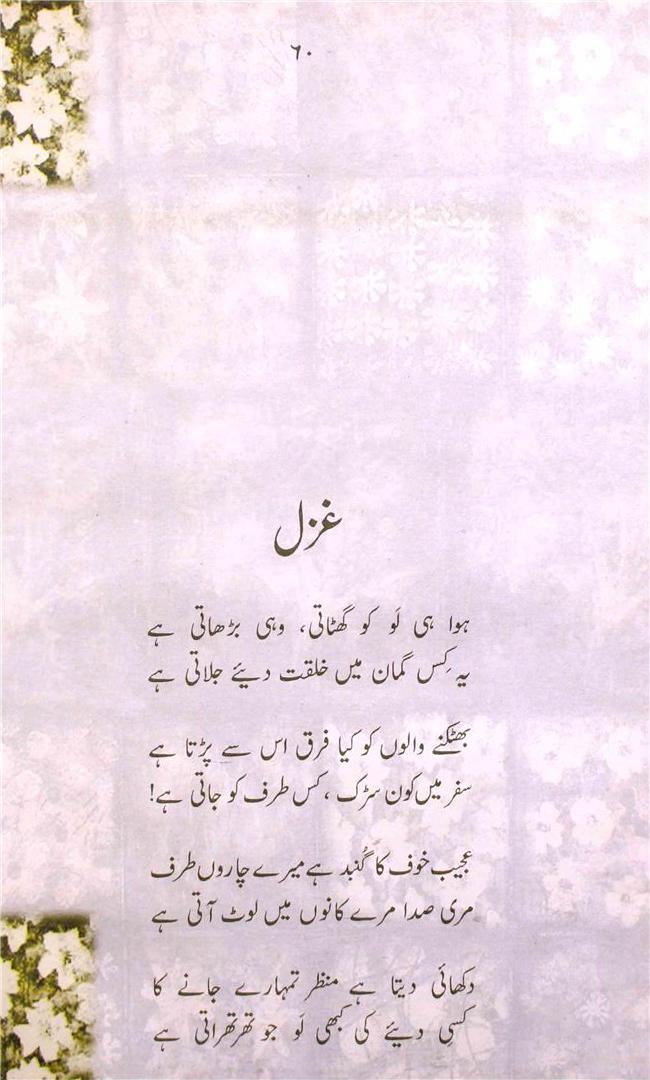 ۶۰
غزل
ہوا ہی لَو کو گھٹاتی، وہی بڑھاتی ہے
یہ کِس گمان میں خلقت دیئے جلاتی ہے
بھٹکنے والوں کو کیا فرق اس سے پڑتا ہے
سفر میں کون سڑک، کس طرف کو جاتی ہے!
عجیب خوف کا گُنبد ہے میرے چاروں طرف
مری صدا مرے کانوں میں لوٹ آتی ہے
دکھائی دیتا ہے منظر تمہارے جانے کا
کسِی دیئے کی کبھی لَو جو تھرتھراتی ہے